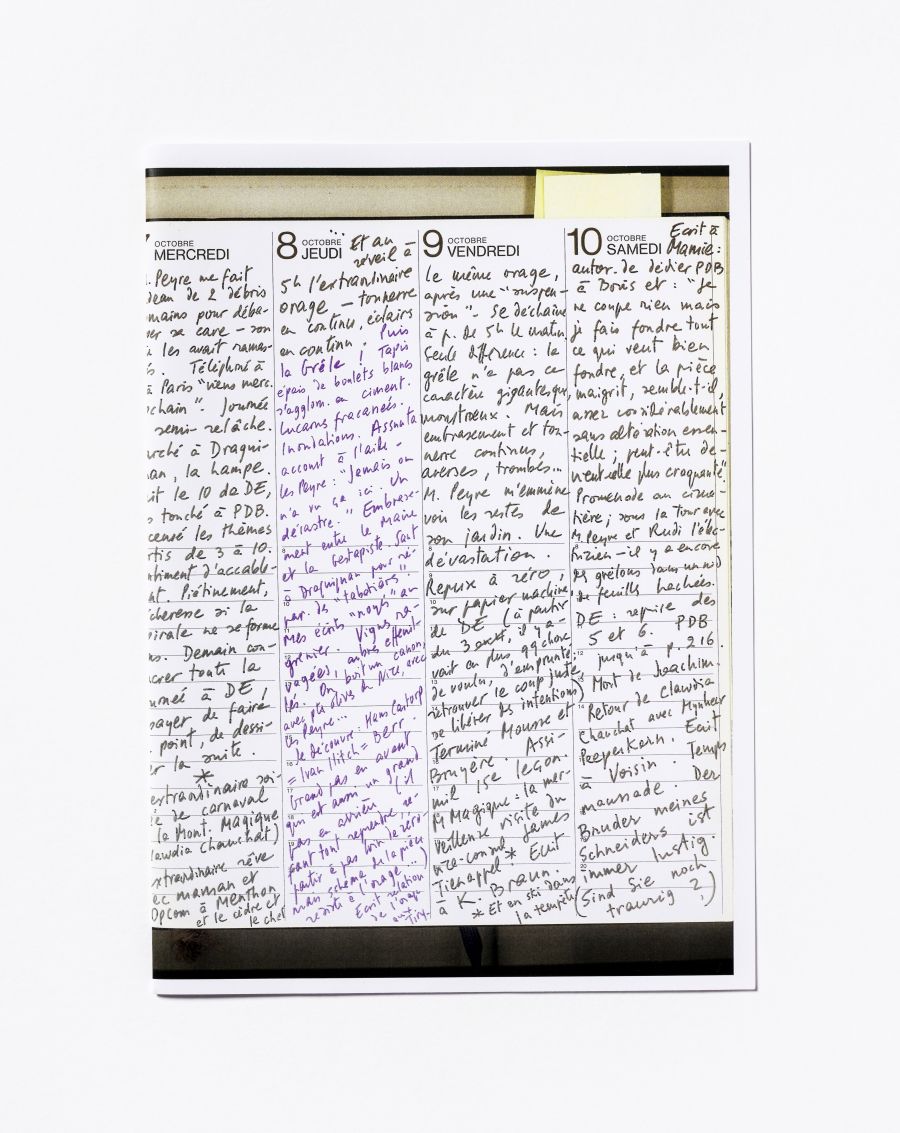 7 OCTOBRE
MERCREDI
. Peyre me fait
deau de 2 débris
mains pour déba-
er sa cave – son
les avait ramas-
s. Téléphoné à
à Paris "viens merc.
chain". Journée
semi-relâche.
rché à Dragui-
an, la hampe.
it le 10 da DE,
s touché à PDB.
censé les thèmes
rtis de 3 à 10.
ntiment d'accable-
nt. Piétinement,
cheresse si la
pirale ne se forme
s. Demain con-
acrer toute la
urnée à DE,
sayer de faire
point, de dessi-
er la suite.
*
extraordinaire soi-
ée de carnaval
(la Mont. Magique
lawdia Chauchat)
xtraordinaire rêve
ec maman et
Opcom à Menthon
et le cidre et
le chef
8 OCTOBRE
JEUDI
... Et au
réveil à
5h l'extraordinaire
orage – tonnerre
en continu, éclairs
en continu. Puis
la Grêle ! Tapis
épais de boulets blancs
s'agglom. en ciment.
Lucarns fracassées.
Inondations. Assunta
accourt à l'aide –
les Peyre : "Jamais on
n'a vu ça ici. Un
désastre." Embrasse-
ment entre le Maire
et la Gestapiste. Saut
à Draguignan pour ré-
par. des "tabatières".
Mes écrits "noyés" au
grenier. Vignes ra-
vagées, arbres effeuil-
lés. On boit un canon,
avec pts olives de Nice, avec
les Peyre...
Je découvre : Hans Castorp
= Ivan Illitch = Berr.
Grand pas en avant
qui est aussi un grand
pas en arrière (il
faut tout reprendre, re-
partir à pas loin de zéro
mais schéma de la pièce
résiste à l'orage...)
Ecrit relation
de l'orage
aux
9 OCTOBRE
VENDREDI
le même orage,
après une "suspen-
sion". Se déchaîne
à p. de 5h le matin.
Seule différence : la
grêle n'a pas ce
caractère gigantesque,
monstrueux. Mais
embrasement et ton-
nerre continus,
averses, trombes...
M. Peyre m'emmène
voir les restes de
son jardin. Une
dévastation.
Repux à zéro,
sur papier machine,
de DE (à partir
du 3 oct, il y a-
vait en plus qq chose
de voulu, d'emprunté.
retrouver le coup juste
se libérer des intentions)
Terminé Mousse et
Bruyère. Assi-
mil 15e leçon.
M Magique : la mer-
veilleuse visite du
vice-consul James
Tienappel * Ecrit
à K. Braun.
* Et en ski dans
la tempête
10 OCTOBRE
SAMEDI
Ecrit à
Mamie :
autor. de dédier PDB
à Doris et : "Je
ne coupe rien mais
je fais fondre tout
ce qui veut bien
fondre, et la pièce
maigrit, semble-t-il,
assez considérablement
sans altération essen-
tielle ; peut-être de-
vient-elle plus croquante"
Promenade au cime-
tière ; sous la Tour avec
M. Peyre et Rudi l'élec-
tricien – il y a encore
des grêlons dans un nid
de feuilles hachées.
DE : reprise des
5 et 6. PDB
jusqu'à p. 216
Mort de Joachim.
Retour de Clawdia
Chauchat avec Mynheer
Peeperkorn. Ecrit
à Voisin. Temps
maussade. Der
Bruder meines
Schneiders ist
immer lustig.
(Sind Sie noch
traurig ?)